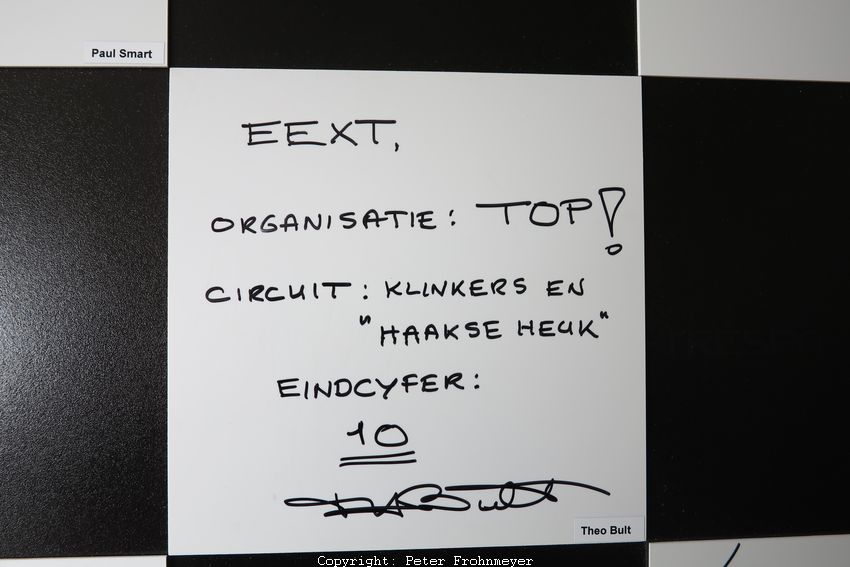 Paul Smart
EEXT,
ORGANISATIE: TOP!
CIRCUIT: KLINKERS EN
"HAAKSE HEUK"
EINDCYFER:
10
Bult
Theo Bult
Copyright: Peter Frohnmeyer